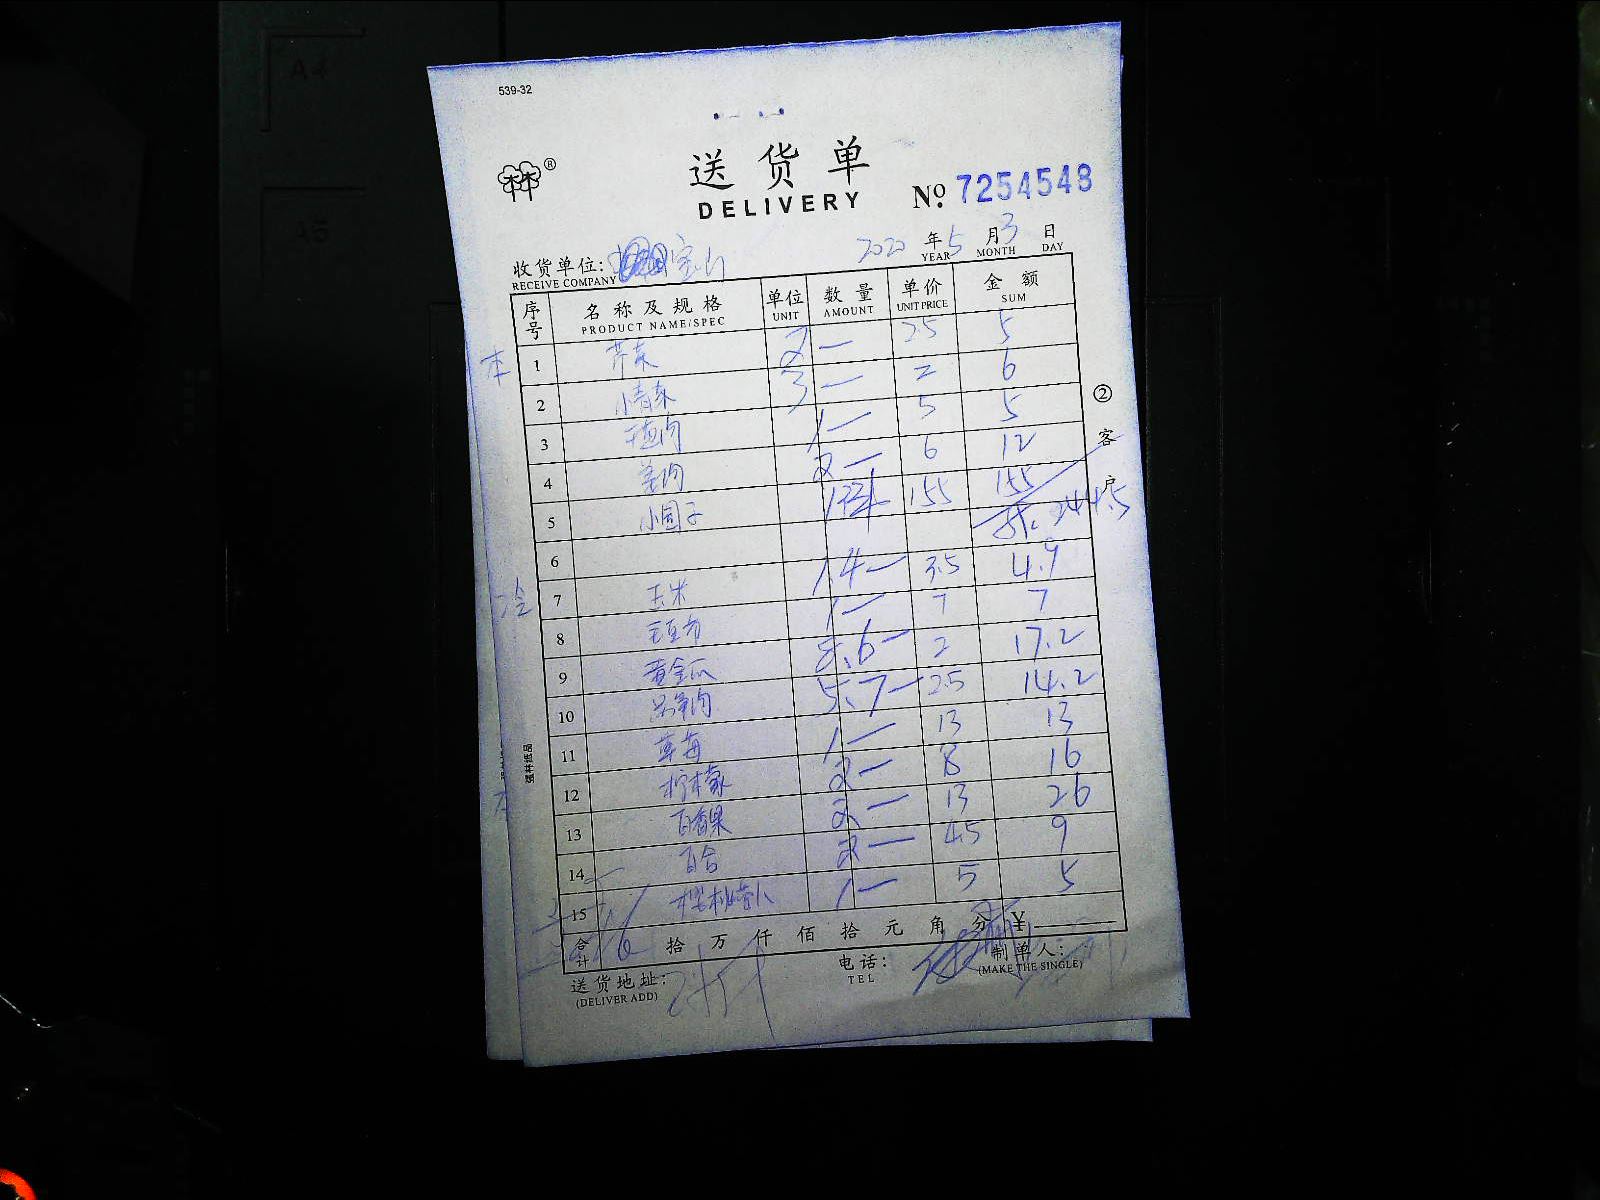 A4
A5
539-32
送货单
DELIVERY
№ 7254548
2020 年 5 月 3 日
YEAR MONTH DAY
收货单位: 宝山
RECEIVE COMPANY
序号 名称及规格 单位 数量 单价 金额
PRODUCT NAME/SPEC UNIT AMOUNT UNIT PRICE SUM
本
1 芹菜 2 — 2.5 5
2 小青菜 3 — 2 6
3 1 — 5 5
4 姜肉 2 — 6 12
5 小圆子 155 155
6
冷
7 玉米 1.4 — 3.5 4.9
8 1 — 7 7
9 黄金瓜 8.6 — 2 17.2
10 5.7 — 2.5 14.2
11 草莓 1 — 13 13
12 柠檬 2 — 8 16
13 百香果 2 — 13 26
14 百合 2 — 4.5 9
15 樱桃萝卜 1 — 5 5
合计 拾 万 仟 佰 拾 元 角 分 ¥
送货地址:
(DELIVER ADD)
电话:
TEL
制单人:
(MAKE THE SINGLE)
② 客户
强林纸品